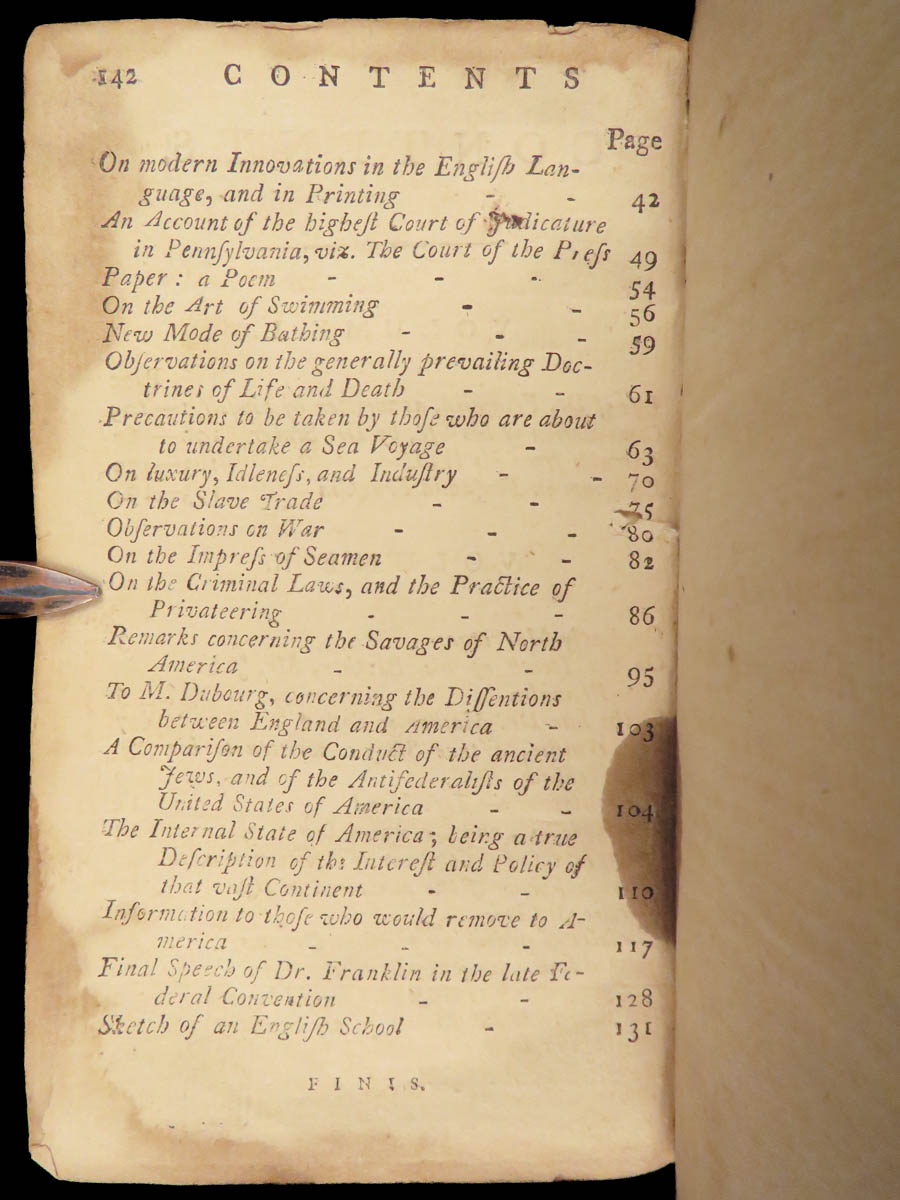 142 CONTENTS
Page
On modern Innovations in the Engliſh Lan-
guage, and in Printing - - 42
An Account of the higheſt Court of Judicature
in Pennſylvania, viz. The Court of the Preſs 49
Paper: a Poem - - - 54
On the Art of Swimming - - 56
New Mode of Bathing - - - 59
Obſervations on the generally prevailing Doc-
trines of Life and Death - - 61
Precautions to be taken by thoſe who are about
to undertake a Sea Voyage - 63
On luxury, Idleneſs, and Induſtry - - 70
On the Slave Trade - - 75
Obſervations on War - - - 80
On the Impreſs of Seamen - - 82
On the Criminal Laws, and the Practice of
Privateering - - - 86
Remarks concerning the Savages of North
America - - 95
To M. Dubourg, concerning the Diſſentions
between England and America - 103
A Compariſon of the Conduct of the ancient
Jews, and of the Antifederaliſts of the
United States of America - - 104
The Internal State of America; being a true
Deſcription of the Intereſt and Policy of
that vaſt Continent - - 110
Information to thoſe who would remove to A-
merica - - - 117
Final Speech of Dr. Franklin in the late Fe-
deral Convention - - 128
Sketch of an Engliſh School - 131
FINIS.